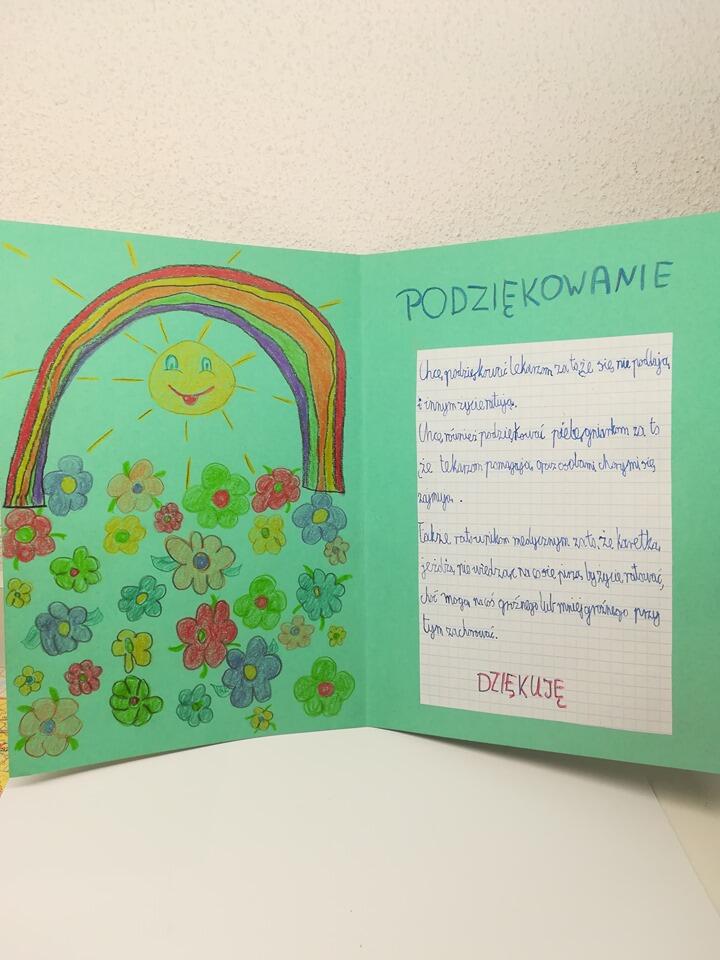 PODZIĘKOWANIE
Chcę podziękować lekarzom za to, że się nie poddają
i innym życie ratują.
Chcę również podziękować pielęgniarkom za to
że lekarzom pomagają oraz osobami chorymi się
zajmują.
Także ratownikom medycznym za to, że karetką
jeżdżą nie wiedząc na co się piszą, by życie ratować,
choć mogą na coś groźnego lub mniej groźnego przy
tym zachorować.
DZIĘKUJĘ